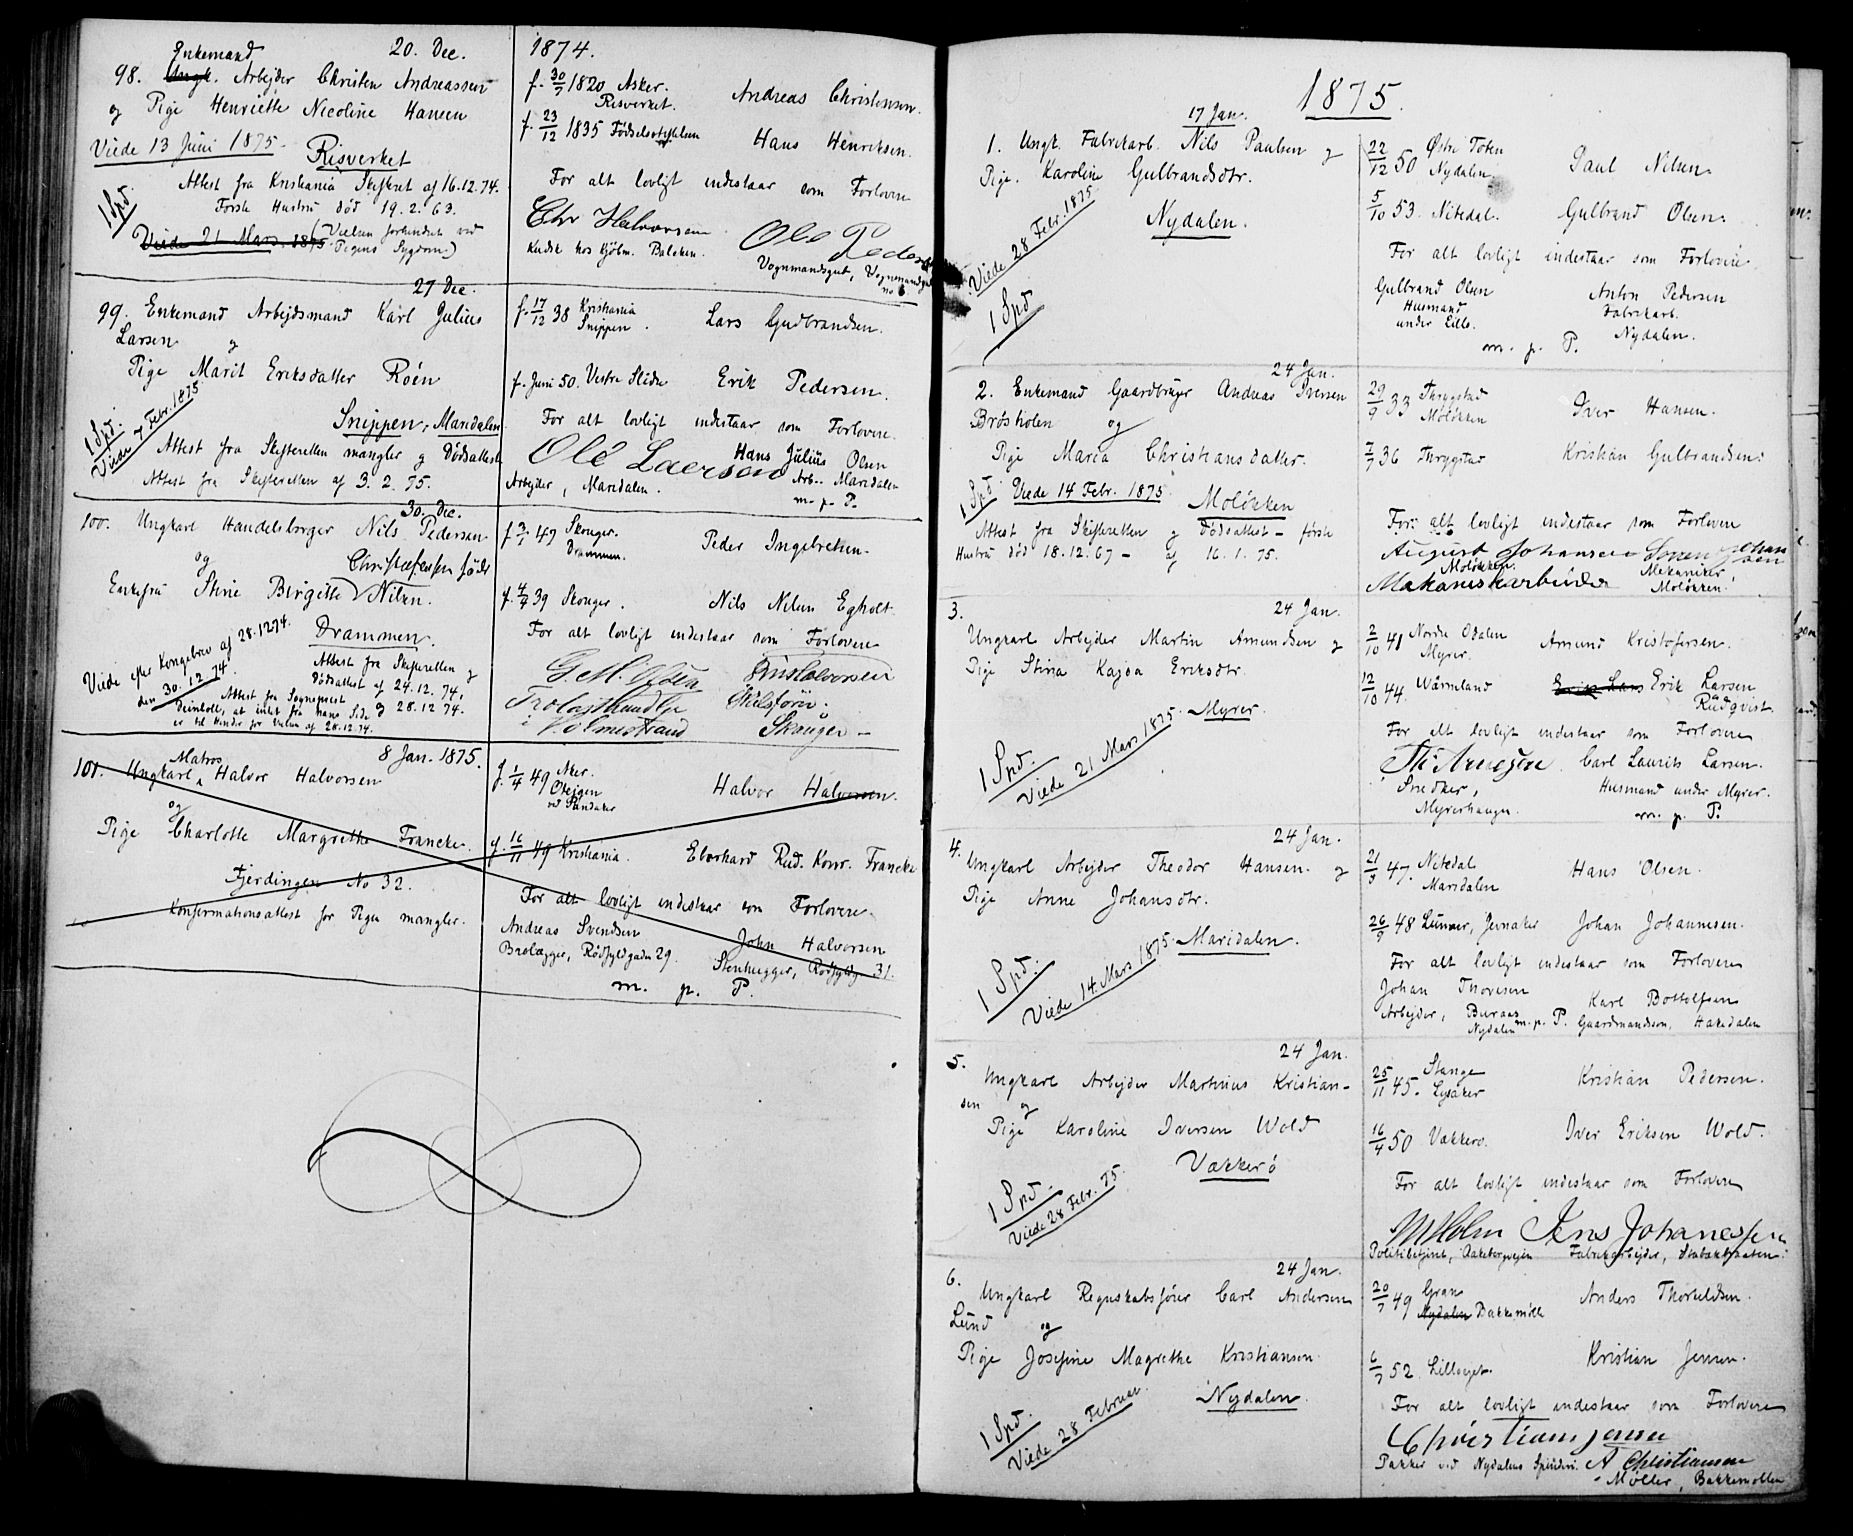 20. Dec. 1874.
Enkemand
98. Ungk. Arbejder Christen Andreassen
og Pige Henriette Nicoline Hansen
Viede 13 Juni 1875.
Risverket
Attest fra Kristiania Skifteret af 16.12.74.
Første Hustru død 19.2.63.
1 Spd.
Viede 21 Mars 1875 (Vielsen forhindret ved
Pigens Sygdom)
f. 30/7 1820 Asker. Andreas Christensen.
Risverket.
f. 23/12 1835 Fødselsstiftelsen Hans Henriksen.
For alt lovligt indestaar som Forlovere
Chr Halvorsen Ole Peders
Kudsk hos Kjøbm. Balchen. Vognmandsgut, Vognmandsgd
no 6
27 Dec.
99. Enkemand Arbejdsmand Karl Julius
Larsen og
Pige Marit Eriksdatter Roen
Snippen, Maridalen
1 Spd.
Viede 7 Febr. 1875
Attest fra Skifteretten mangler og Dødsattest
Attest fra Skifteretten af 3.2.75.
f. 17/12 38 Kristiania Lars Gudbrandsen.
Snippen.
f. Juni 50. Vestre Slidre Erik Pedersen.
For alt lovligt indestaar som Forlovere.
Ole Laersen Hans Julius Olsen
Arbejder, Maridalen. Arb. Maridalen
m. p. P.
30. Dec.
100. Ungkarl Handelsborger Nils Pedersen
og Christofersen født
Enkefru Stine Birgitte Nilsen.
Drammen.
Viede efter Kongebrev af 28.12.74.
den 30.12.74.
Attest fra Skifteretten og
Dødsattest af 24.12.74,
Attest fra Sogneprest
Deinboll, at intet fra hans Side 28.12.74.
er til Hinder for Vielsen af 28.12.74.
f. 3/1 47 Skouger. Peder Ingebretsen.
Drammen.
f. 4/7 39 Skouger. Nils Nilsen Egholt.
For alt lovligt indestaar som Forlovere
G. M. Olsen
i Holmestrand Skouger
8 Jan. 1875.
Matros
101. Ungkarl Halvor Halvorsen
og
Pige Charlotte Margrethe Francke.
Fjerdingen No 32.
Konfirmationsattest for Pigen mangler.
f. 1/4 49 Aker. Halvor Halvorsen.
ved Sandaker
f. 16/11 49 Kristiania. Eberhard Rud. Konr. Francke
For alt lovligt indestaar som Forlovere.
Andreas Svendsen John Halvorsen
Brolægger, Rødfyldgaden 29. Stenhugger, Rødfyldg 31.
m. p. P.
1875.
17 Jan.
1. Ungk. Fabrikarb. Nils Paulsen og
Pige. Karoline Gulbrandsdtr.
Nydalen.
Viede 28 Febr. 1875
1 Spd
22/12 50 Østre Toten Paul Nilsen.
Nydalen
5/10 53. Nitedal. Gulbrand Olsen.
For alt lovligt indestaar som Forlovere
Gulbrand Olsen Anton Pedersen
Husmand Fabrikarb.
under Lille. Nydalen.
m. p. P.
24 Jan.
2. Enkemand Gaardbruger Andreas Iversen
Brøsholen og
Pige Maria Christiansdatter.
1 Spd. Viede 14 Febr. 1875. Moløkken
Attest fra Skifteretten og Dødsattest – første
Hustru død 18.12.67 – af 16.1.75.
29/9 33 Thrygstad Iver Hansen.
Moløkken
7/7 36 Thrygstad Kristian Gulbrandsen.
For alt lovligt indestaar som Forlovere
August Johansen Soren Johan
sen
Moløkken. Mekaniker,
Makaniskarbeider Moløkken.
3. 24 Jan.
Ungkarl Arbejder Martin Amundsen og
Pige Stina Kajsa Eriksdtr.
Myrer.
1 Spd.
Viede 21 Mars 1875.
2/10 41 Nordre Odalen Amund Kristofersen.
Myrer.
12/10 44. Wärmland Erik Lars Erik Larsen
Rudqvist.
For alt lovligt indestaar som Forlovere
Th: Arnesen Carl Laurits Larsen.
Snedker, Husmand under Myrer.
Myrerhaugen. m. p. P.
4. 24 Jan.
Ungkarl Arbejder Theodor Hansen og
Pige Anne Johansdtr.
Maridalen.
1 Spd.
Viede 14. Mars 1875.
21/3 47. Nitedal Hans Olsen.
Maridalen
26/9 48 Lunner, Jevnaker Johan Johannesen.
For alt lovligt indestaar som Forlovere
Johan Thoresen Karl Bottolfsen
Arbejder, Buraas m. p. P. Gaardmandssøn, Hakedalen
Nydalen
5. 24 Jan.
Ungkarl Arbejder Martinus Kristian-
sen og
Pige Karoline Iversen Wold
Vækkerø
1 Spd.
Viede 28 Febr. 75
25/11 45. Stange Kristian Pedersen.
Lysaker
16/4 50 Vækkerø. Iver Eriksen Wold.
For alt lovligt indestaar som Forlovere
M Holm Jens Johanessen
Politibetjent, Fabrikarbejder,
6. 24 Jan.
Ungkarl Regnskabsfører Carl Andersen
Lund og
Pige Josefine Magrethe Kristiansen.
Nydalen.
1 Spd.
Viede 28 Februar
20/7 49 Gran Anders Thorkildsen.
Nydalen Bakkemølle
6/7 52. Lilloeget. Kristian Jensen.
For alt lovligt indestaar som Forlovere
Christian Jensen
Pakker ved Nydalens Spinderi. A Christiansen
Møller, Bakkemøllen